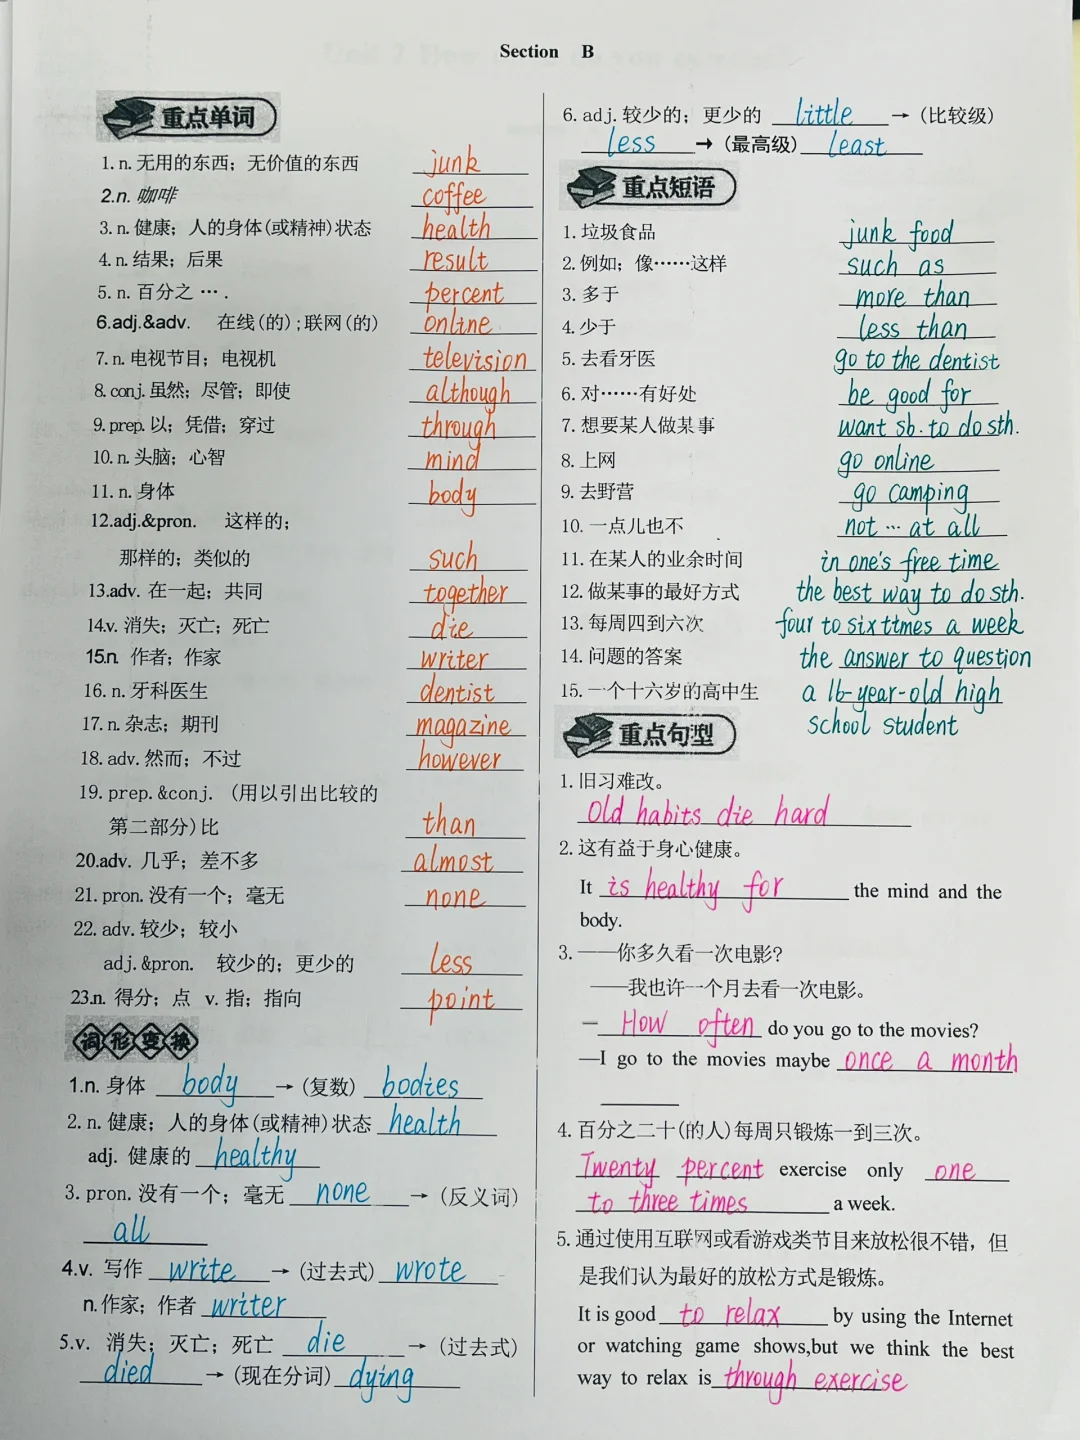 Section B
重点单词
1. n. 无用的东西；无价值的东西 junk
2.n. 咖啡 coffee
3. n. 健康；人的身体(或精神)状态 health
4. n. 结果；后果 result
5. n. 百分之 …. percent
6.adj.&adv. 在线(的);联网(的) online
7. n. 电视节目；电视机 television
8. conj. 虽然；尽管；即使 although
9. prep. 以；凭借；穿过 through
10. n. 头脑；心智 mind
11. n. 身体 body
12.adj.&pron. 这样的；
那样的；类似的 such
13.adv. 在一起；共同 together
14.v. 消失；灭亡；死亡 die
15.n. 作者；作家 writer
16. n. 牙科医生 dentist
17. n. 杂志；期刊 magazine
18. adv. 然而；不过 however
19. prep. &conj. (用以引出比较的
第二部分)比 than
20.adv. 几乎；差不多 almost
21. pron. 没有一个；毫无 none
22. adv. 较少；较小
adj. &pron. 较少的；更少的 less
23.n. 得分；点 v. 指；指向 point
词形变换
1.n. 身体 body → (复数) bodies
2. n. 健康；人的身体(或精神)状态 health
adj. 健康的 healthy
3. pron. 没有一个；毫无 none → (反义词)
all
4.v. 写作 write → (过去式) wrote
n. 作家；作者 writer
5.v. 消失；灭亡；死亡 die → (过去式)
died → (现在分词) dying
6. adj. 较少的；更少的 little → (比较级)
less → (最高级) least
重点短语
1. 垃圾食品 junk food
2. 例如；像……这样 such as
3. 多于 more than
4. 少于 less than
5. 去看牙医 go to the dentist
6. 对……有好处 be good for
7. 想要某人做某事 want sb. to do sth.
8. 上网 go online
9. 去野营 go camping
10. 一点儿也不 not … at all
11. 在某人的业余时间 in one's free time
12. 做某事的最好方式 the best way to do sth.
13. 每周四到六次 four to six ttmes a week
14. 问题的答案 the answer to question
15. 一个十六岁的高中生 a 16-year-old high
school student
重点句型
1. 旧习难改。
Old habits die hard
2. 这有益于身心健康。
It is healthy for the mind and the
body.
3. ——你多久看一次电影?
——我也许一个月去看一次电影。
— How often do you go to the movies?
—I go to the movies maybe once a month
4. 百分之二十(的人)每周只锻炼一到三次。
Twenty percent exercise only one
to three times a week.
5. 通过使用互联网或看游戏类节目来放松很不错，但
是我们认为最好的放松方式是锻炼。
It is good to relax by using the Internet
or watching game shows,but we think the best
way to relax is through exercise